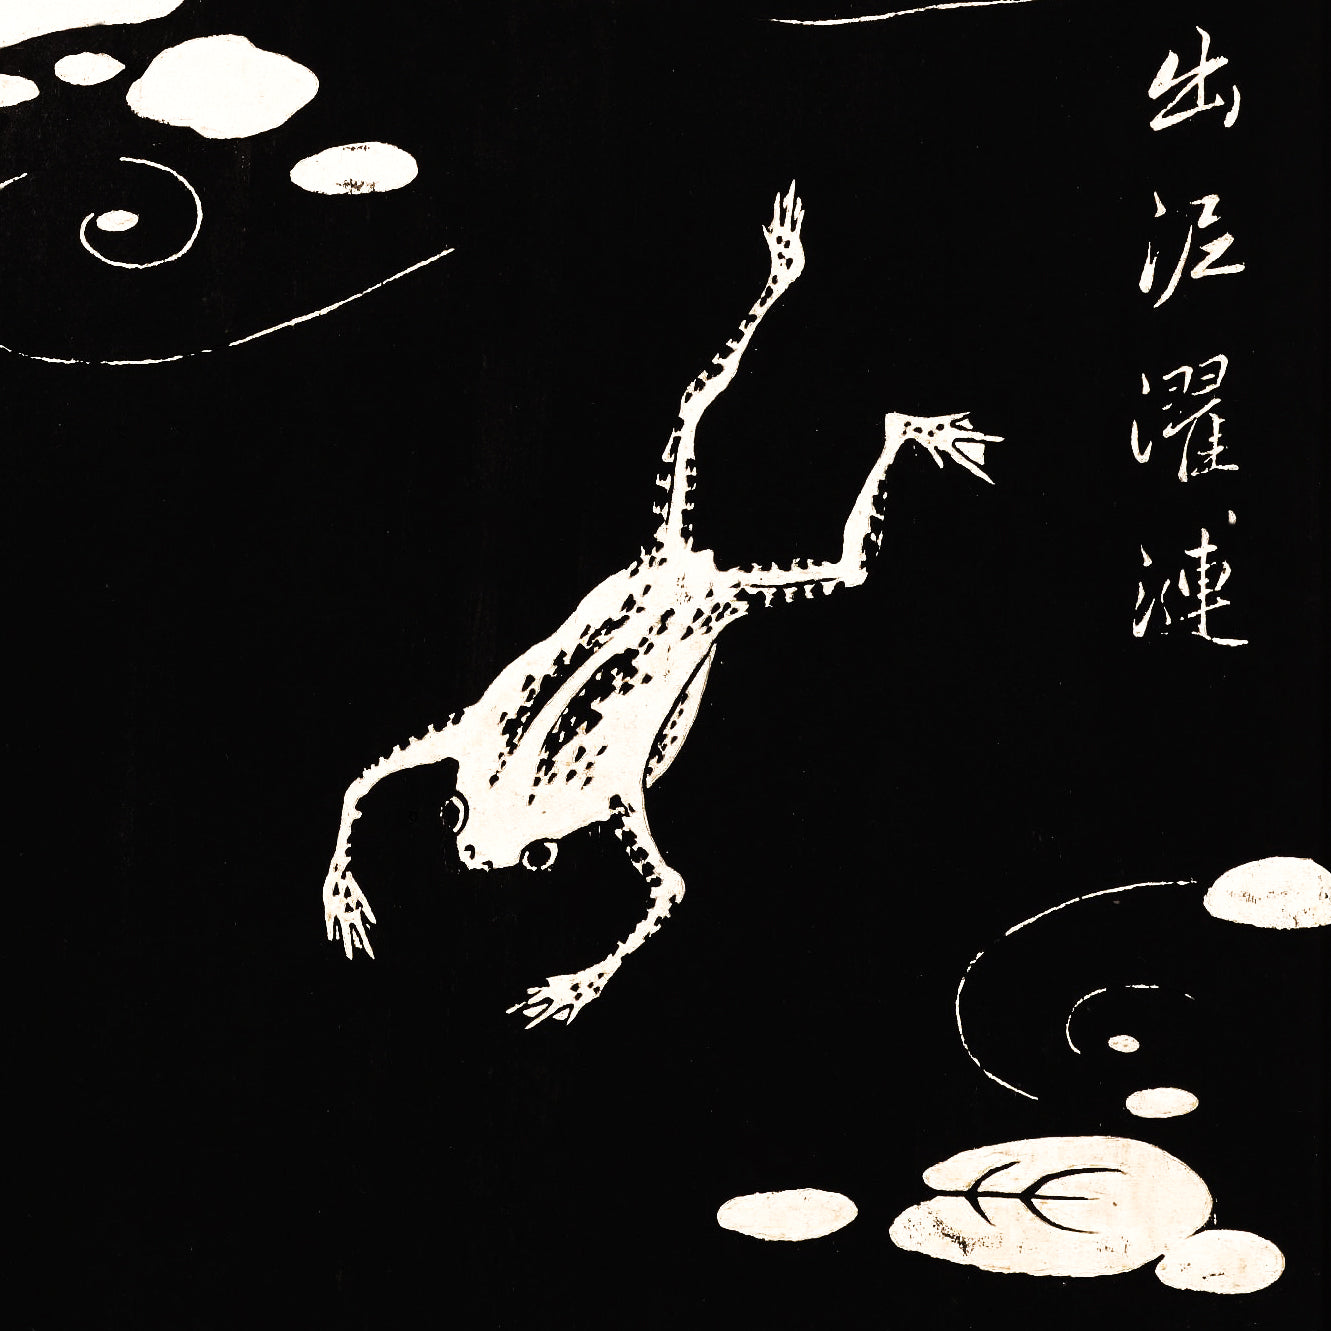 出泥濯漣